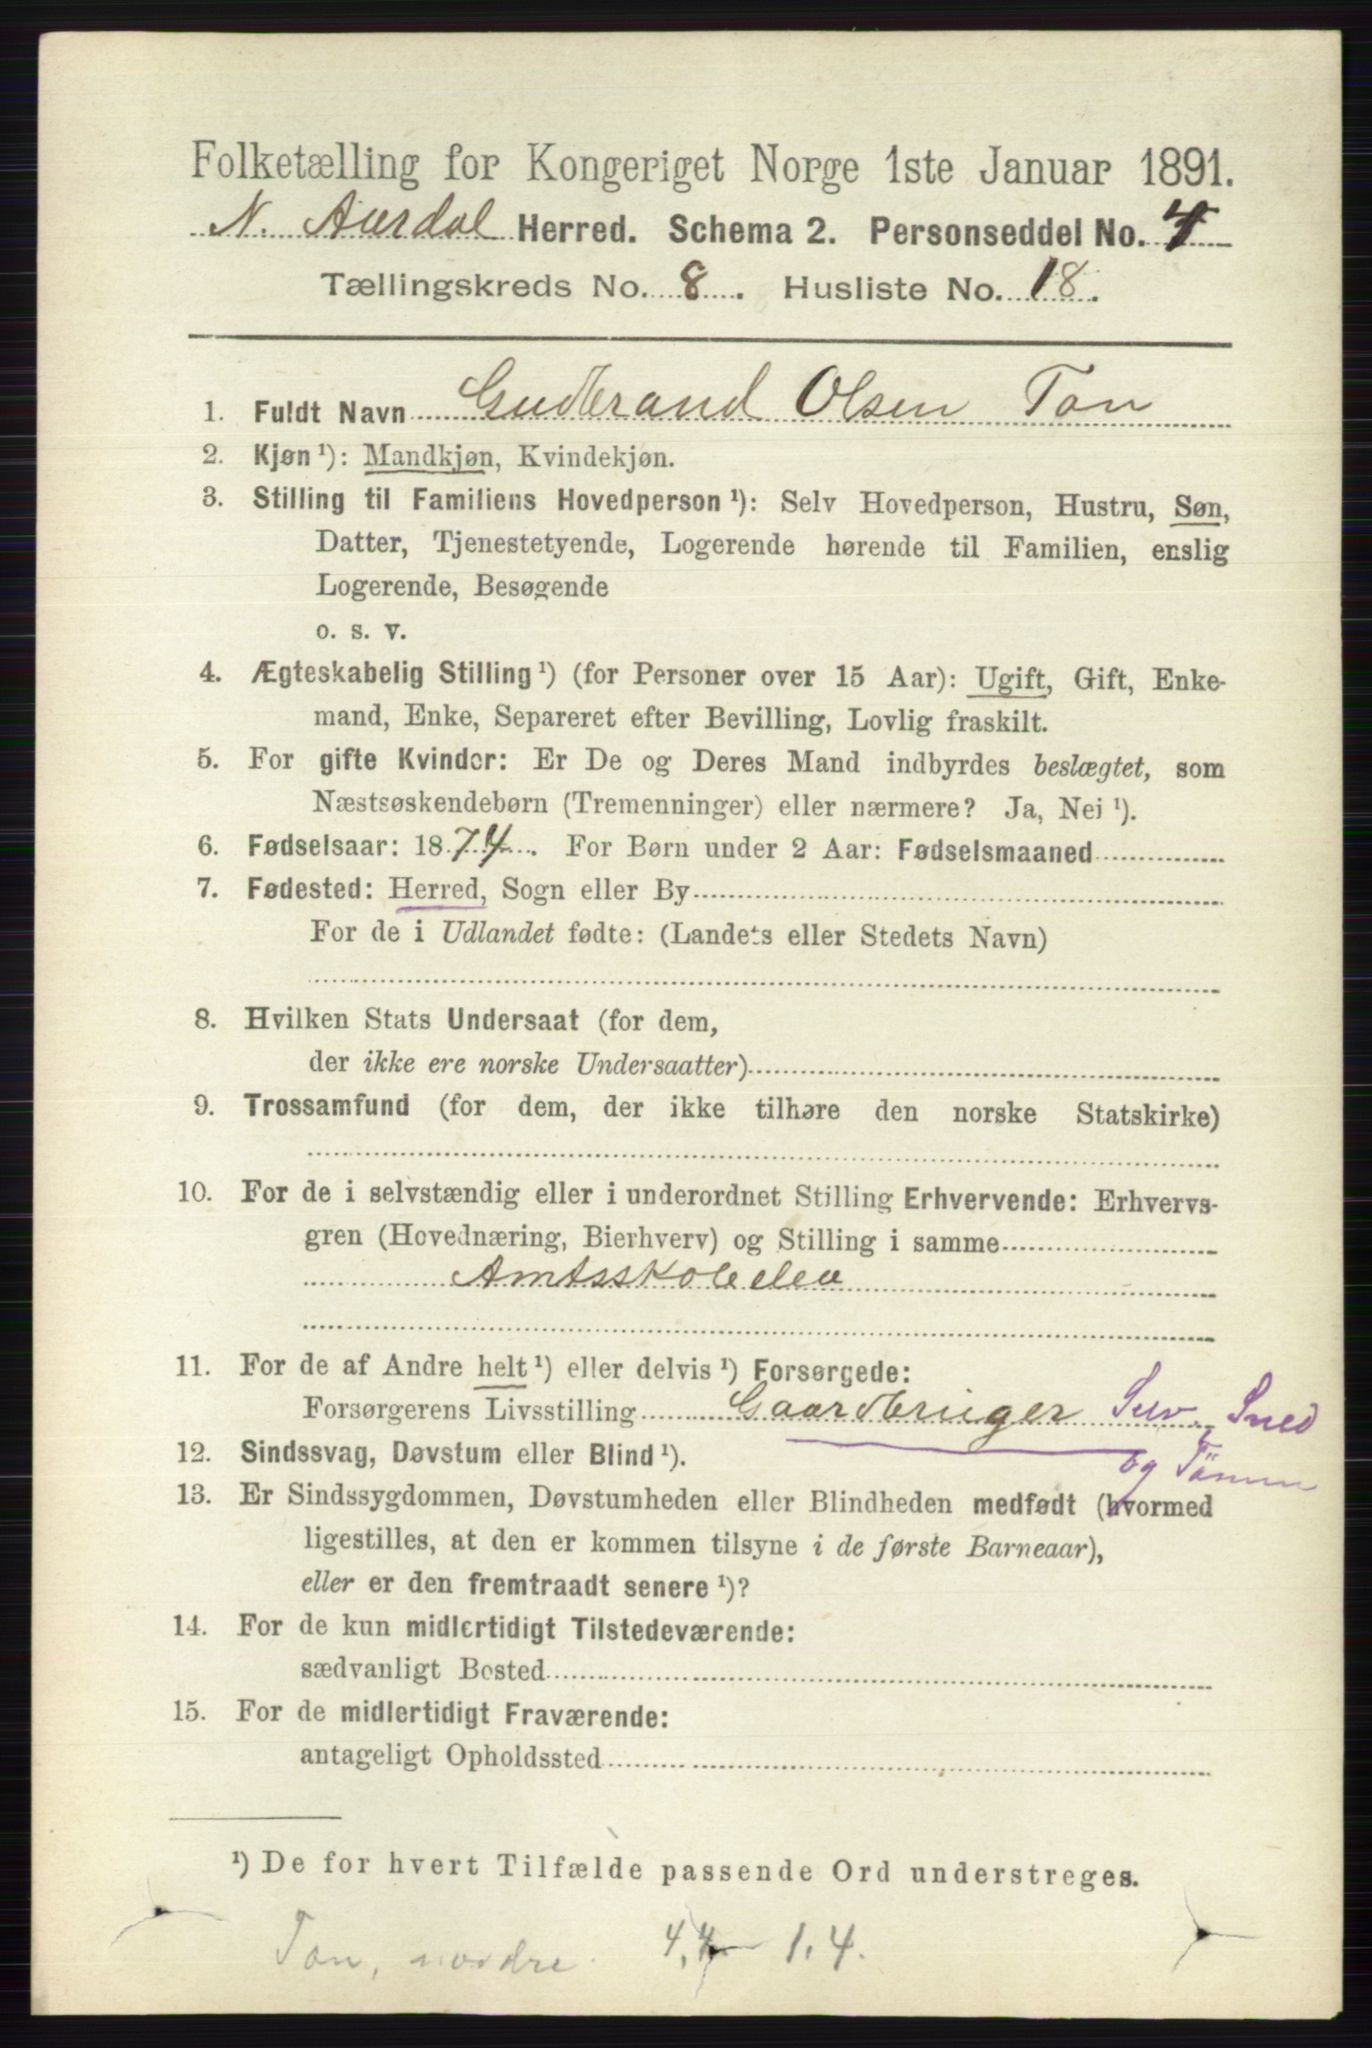 Folketælling for Kongeriget Norge 1ste Januar 1891.
N. Aurdal Herred. Schema 2. Personseddel No. 4
Tællingskreds No. 8. Husliste No. 18.
1. Fuldt Navn Gudbrand Olsen Ton
2. Kjøn ¹): Mandkjøn, Kvindekjøn.
3. Stilling til Familiens Hovedperson ¹): Selv Hovedperson, Hustru, Søn,
Datter, Tjenestetyende, Logerende hørende til Familien, enslig
Logerende, Besøgende
o. s. v.
4. Ægteskabelig Stilling ¹) (for Personer over 15 Aar): Ugift, Gift, Enke-
mand, Enke, Separeret efter Bevilling, Lovlig fraskilt.
5. For gifte Kvinder: Er De og Deres Mand indbyrdes beslægtet, som
Næstsøskendebørn (Tremenninger) eller nærmere? Ja, Nei ¹).
6. Fødselsaar: 1874. For Børn under 2 Aar: Fødselsmaaned
7. Fødested: Herred, Sogn eller By
For de i Udlandet fødte: (Landets eller Stedets Navn)
8. Hvilken Stats Undersaat (for dem,
der ikke ere norske Undersaatter)
9. Trossamfund (for dem, der ikke tilhøre den norske Statskirke)
10. For de i selvstændig eller i underordnet Stilling Erhvervende: Erhvervs-
gren (Hovednæring, Bierhverv) og Stilling i samme
Amtsskoleelev
11. For de af Andre helt ¹) eller delvis ¹) Forsørgede:
Forsørgerens Livsstilling Gaardbruger Selv, Sned
og Tömm
12. Sindssvag, Døvstum eller Blind ¹).
13. Er Sindssygdommen, Døvstumheden eller Blindheden medfødt (hvormed
ligestilles, at den er kommen tilsyne i de første Barneaar),
eller er den fremtraadt senere ¹)?
14. For de kun midlertidigt Tilstedeværende:
sædvanligt Bosted
15. For de midlertidigt Fraværende:
antageligt Opholdssted
¹) De for hvert Tilfælde passende Ord understreges.
Ton, nordre. 4,4 1,4.